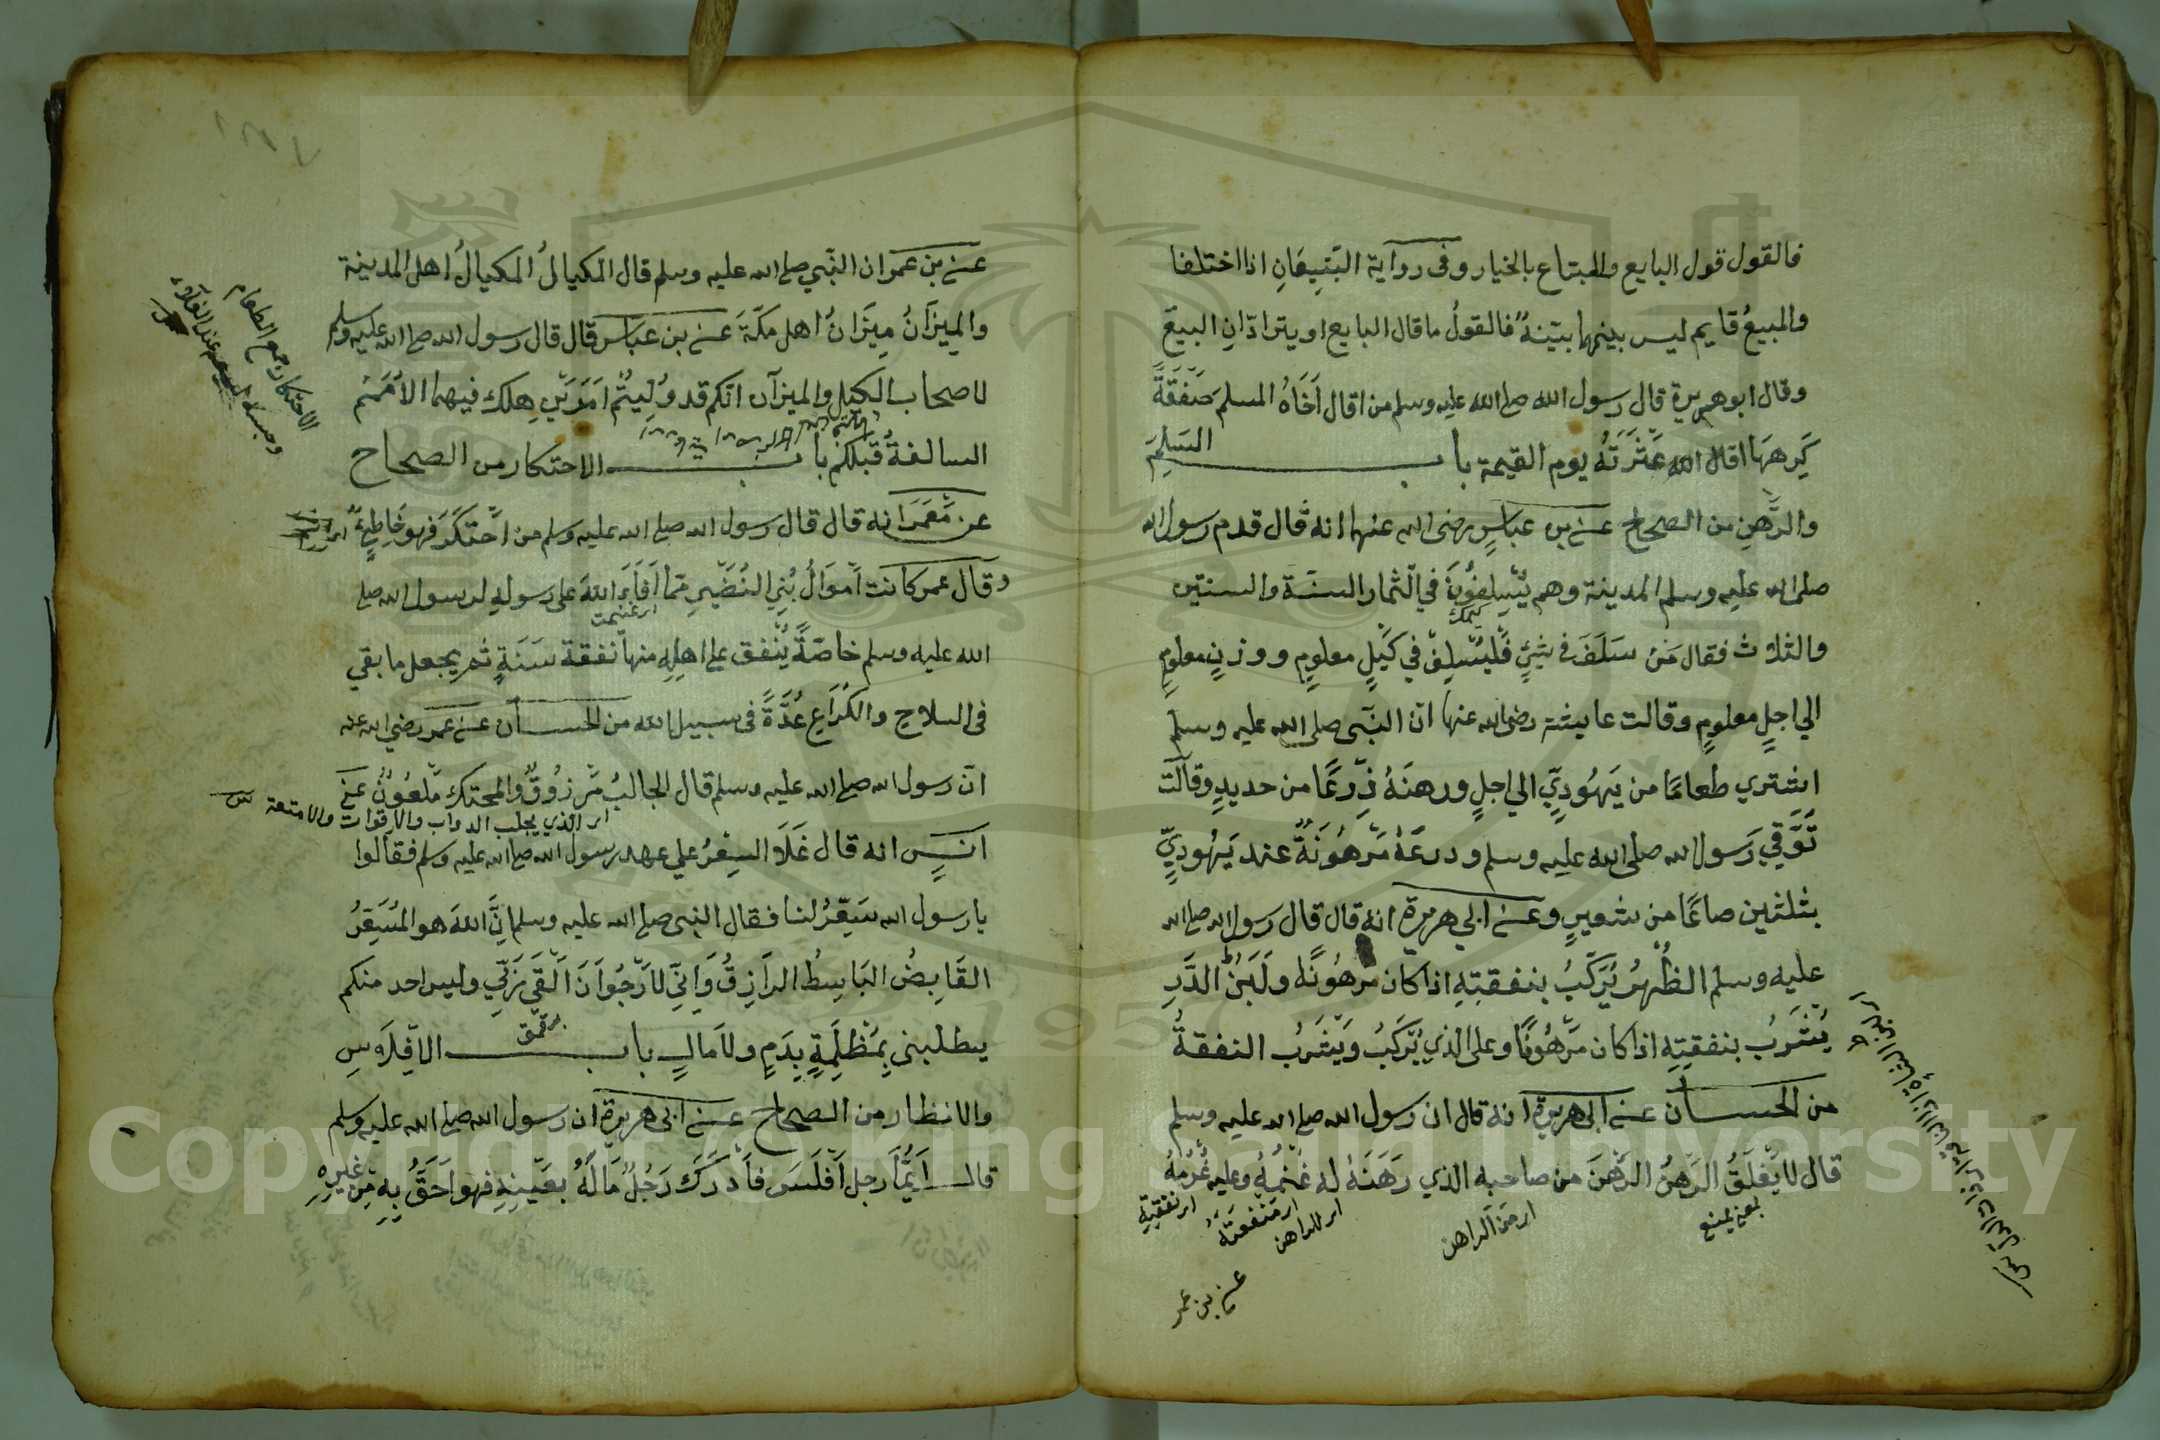 فالقول قول البايع والمبتاع بالخيار وفى رواية البَيِّعَانِ اذا اختلفا
والمبيعُ قايم ليس بينهما بيّنةٌ فالقولُ ما قال البايع او يترادّانِ البيعَ
وقال ابو هريرة قال رسول الله صلى الله عليه وسلم من اقال اَخَاهُ المسلم صَفْقَةً
كَرِهَهَا اقال الله عَثْرَتَهُ يوم القيمة باب السَلَمِ
والرَّهْنِ من الصحاح عن بن عباسٍ رضى الله عنهما انه قال قدم رسول الله
صلى الله عليه وسلم المدينة وهم يُسْلِفُونَ في الثمار السنَة والسنتين
والثلاث فقال مَنْ سَلَفَ فى شيئٍ فَلْيُسْلِفْ في كَيْلٍ معلومٍ ووزنٍ معلومٍ
الي اجلٍ معلومٍ وقالت عايشة رضى الله عنها انّ النبّى صلى الله عليه وسلم
اشتري طعامًا من يَهُودِيٍّ الي اجلٍ ورهنَهُ دِرْعًا من حديدٍ وقالت
تُوُفِّيَ رَسول الله صلى الله عليه وسلم ودرعُهُ مَرْهُونَةٌ عند يَهُودِيٍّ
بثلثين صاعًا من شعيرٍ وعن ابي هريرة انه قال قال رسول الله صلى الله
عليه وسلم الظَّهْرُ يُرْكَبُ بنفقتِهِ اذا كان مَرْهُونًا ولَبَنُ الدَّرِ
يُشْرَبُ بنفقتِهِ اذا كان مَرْهُونًا وعلى الذي يَرْكَبُ ويَشْرَبُ النفقةُ
من الحسان عن ابى هريرة انه قال ان رسول الله صلى الله عليه وسلم
قال لا يُغْلَقُ الرَّهْنُ الرَّهْنَ من صاحبه الذي رَهَنَهُ له غُنْمُهُ وعليه غُرْمُهُ
بمعنى يمنع
اى من الراهن
اى للراهن
اى منفعته
اى نفقته
عن بن عمر
عن بن عمر ان النبّي صلى الله عليه وسلم قال المكيالُ المكيالُ اهل المدينة
والمِيزَانُ مِيزَانُ اهل مكّةَ عن بن عباس قال قال رسول الله صلى الله عليه وسلم
لاصحاب الكيل والميزان انكم قد وُلِّيتُم اَمْرَيْنِ هلك فيهما الاُمَمُ
السالفةُ قَبْلَكُمْ باب الاحتكار من الصحاح
عن مَعْمَرٍ انه قال قال رسول الله صلى الله عليه وسلم من احْتَكَرَ فهو خَاطِئٌ
وقال عمر كانت اَموَالُ بُنِي النُضَيْرِ ممّا اَفَاءَ اللهُ على رسوله لرسول الله صلى
الله عليه وسلم خاصّةً يُنْفق على اهلِهِ منها نفقة سَنَةٍ ثم يجعل ما بقي
فى السلاح والكُرَاعِ عُدَّةً فى سبيل الله من الحسان عن عمر رضي الله عنه
انّ رسول الله صلى الله عليه وسلم قال الجالبُ مَرْزُوقٌ والمحتكر مَلْعُونٌ عن
اى الذي يجلب الدواب والاقوات والامتعة
انسٍ انه قال غَلَا السِعْرُ علي عهد رسول الله صلى الله عليه وسلم فقالوا
يا رسول الله سَعِّرْ لنا فقال النبى صلى الله عليه وسلم اِنَّ اللهَ هو المُسَعِّرُ
القَابِضُ البَاسِطُ الرَازِقُ وَاِنِّي لاَرْجُوا اَنْ اَلْقَي رَبِّي وليس احد منكم
يطلبنى بِمَظْلِمَةٍ بِدَمٍ ولا مالٍ باب الاِفْلَاسِ
والانظار من الصحاح عن ابى هريرة ان رسول الله صلى الله عليه وسلم
قال اَيُّمَا رجلٍ اَفْلَسَ فاَدْرَكَ رَجُلٌ مَالَهُ بعَيْنِهِ فهو اَحَقُّ بِهِ مِن غيرِهِ
الاحتكار جمع الطعام
Copyright © King Saud University
1957